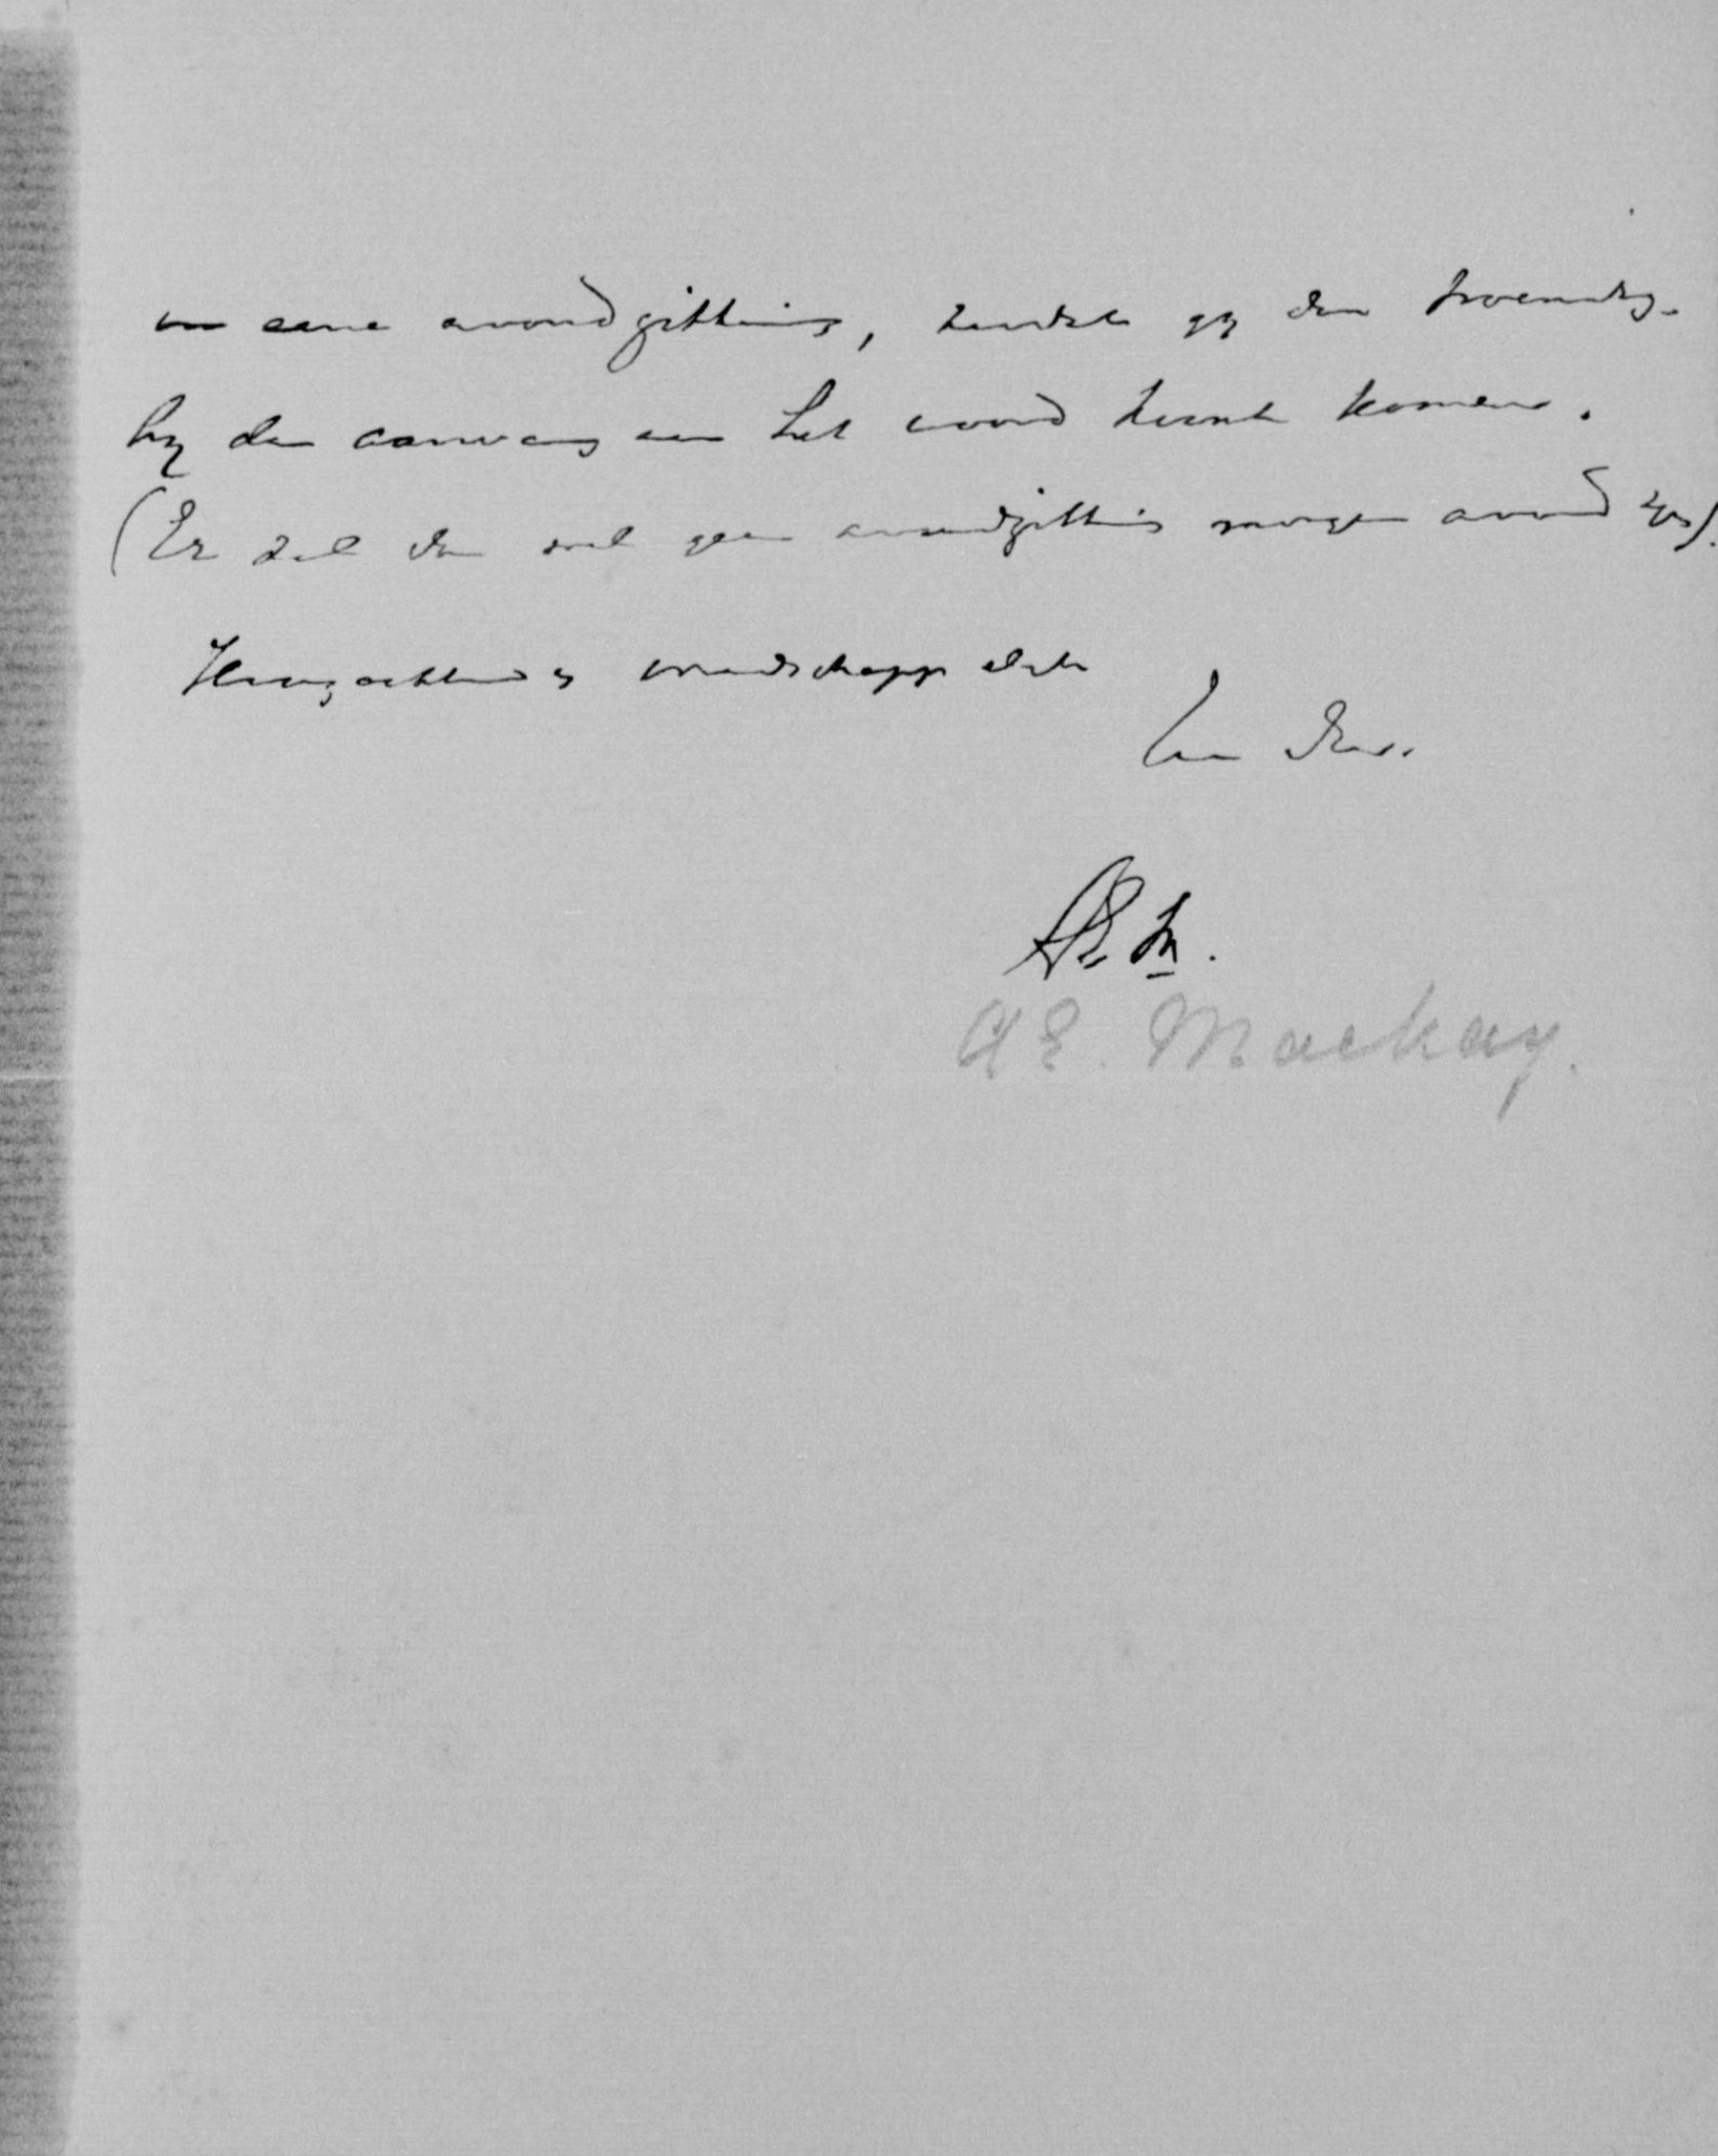 in eene avondzitting, zoudet gij den woensdag
bij den aanvang aan het woord kunt komen.
(Er zal dan wel geen avondzitting morgen avond zijn).
Hoogachtend en vriendschappelijk
Uw dw.
AEM.
AE. Mackay.